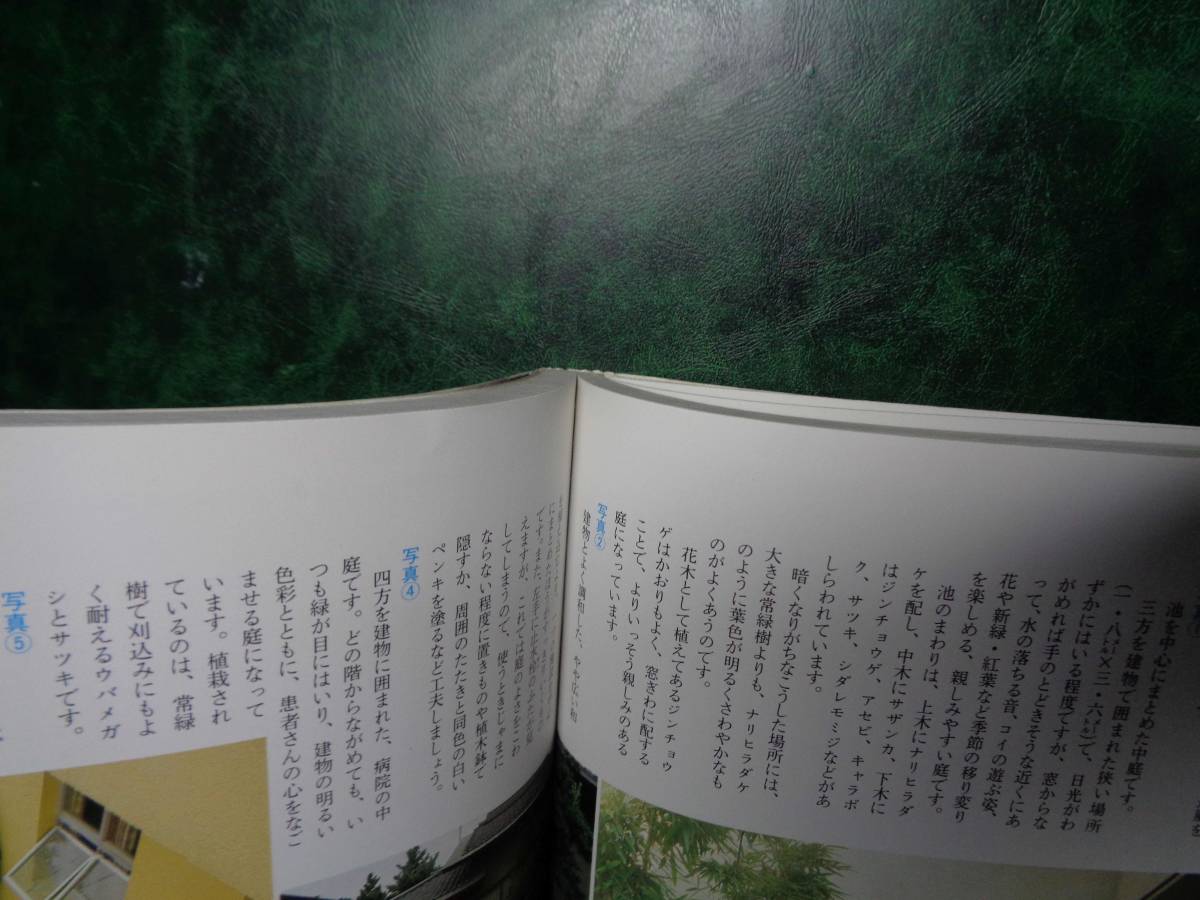 池を中心にまとめた中庭です。
三方を建物で囲まれた狭い場所
(一・八メートル×三・六メートル)で、日光がわ
ずかにはいる程度ですが、窓からな
がめれば手のとどきそうな近くにあ
って、水の落ちる音、コイの遊ぶ姿、
花や新緑・紅葉など季節の移り変り
を楽しめる、親しみやすい庭です。
池のまわりは、上木にナリヒラダ
ケを配し、中木にサザンカ、下木に
はジンチョウゲ、アセビ、キャラボ
ク、サツキ、シダレモミジなどがあ
しらわれています。
暗くなりがちなこうした場所には、
大きな常緑樹よりも、ナリヒラダケ
のように葉色が明るくさわやかなも
のがよくあうのです。
花木として植えてあるジンチョウ
ゲはかおりもよく、窓ぎわに配する
ことで、よりいっそう親しみのある
庭になっています。
写真②
建物とよく調和した、やや広い和
です。また、左手に
えますが、これでは庭のよさをこわ
してしまうので、使うときじゃまに
ならない程度に置きものや植木鉢で
隠すか、周囲のたたきと同色の白い
ペンキを塗るなど工夫しましょう。
写真④
四方を建物に囲まれた、病院の中
庭です。どの階からながめても、い
つも緑が目にはいり、建物の明るい
色彩とともに、患者さんの心をなご
ませる庭になって
います。植栽され
ているのは、常緑
樹で刈込みにもよ
く耐えるウバメガ
シとサツキです。
写真⑤